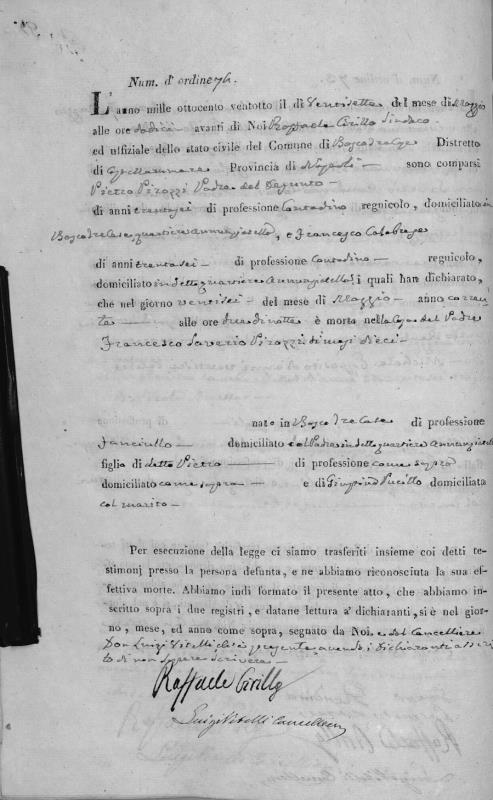 Num. d' ordine 74.
L'anno mille ottocento ventotto il dì Ventisette del mese di Maggio
alle ore dodici avanti di Noi Raffaele Cirillo Sindaco
ed uffiziale dello stato civile del Comune di Boscotrecase Distretto
di Castellammare Provincia di Napoli sono comparsi
Pietro Pirozzi Padre del Defunto
di anni trentasei di professione Contadino regnicolo, domiciliato in
Boscotrecase quartiere Annunziatella, e Francesco Calabrese
di anni trentasei di professione Contadino regnicolo,
domiciliato in detto quartiere Annunziatella i quali han dichiarato,
che nel giorno ventisei del mese di Maggio anno corren
te alle ore due di notte è morto nella Casa del Padre
Francesco Saverio Pirozzi di mesi dieci
nato in Boscotrecase di professione
fanciullo domiciliato col Padre in detto quartiere Annunziatella
figlio di detto Pietro di professione come sopra
domiciliato come sopra e di Pucillo domiciliata
col marito
Per esecuzione della legge ci siamo trasferiti insieme coi detti te-
stimonj presso la persona defunta, e ne abbiamo riconosciuta la sua ef-
fettiva morte. Abbiamo indi formato il presente atto, che abbiamo in-
scritto sopra i due registri, e datane lettura a' dichiaranti, si è nel gior-
no, mese, ed anno come sopra, segnato da Noi e dal Cancelliere
Don Luigi Vitelli presente avendo i Dichiaranti asseri
to di non sapere scrivere
Raffaele Cirillo
Luigi Vitelli Cancelliere